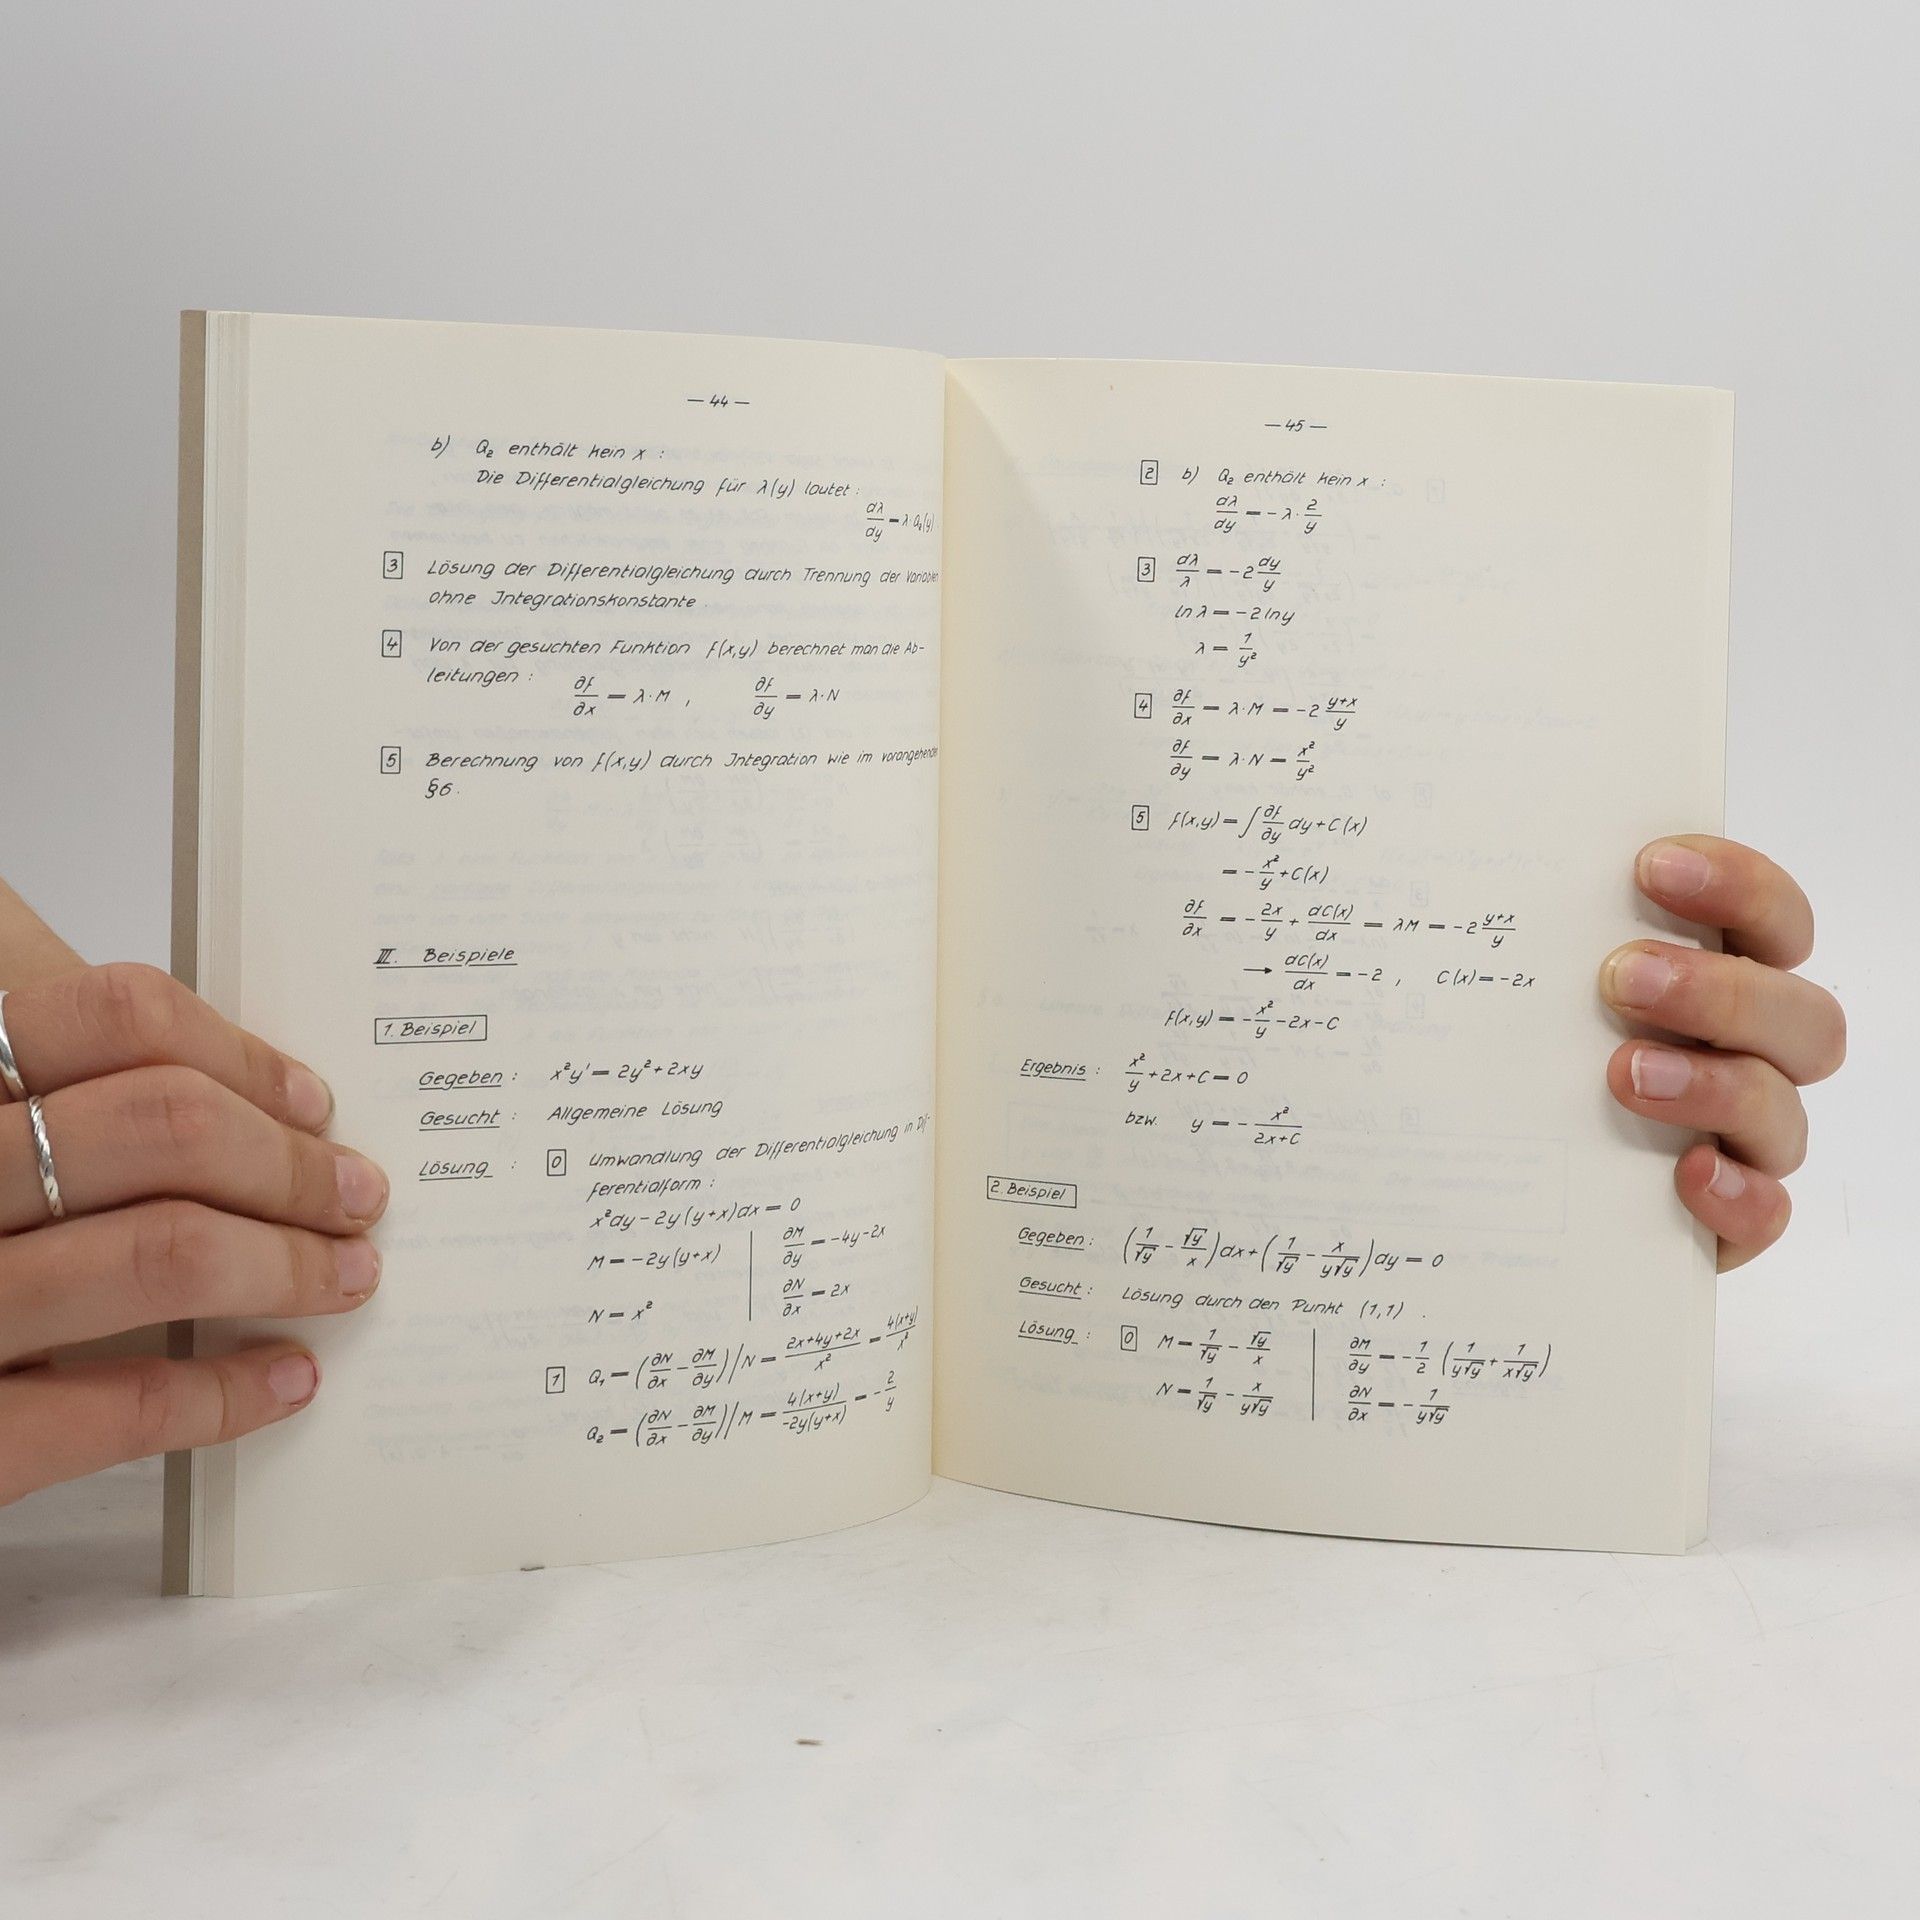 — 44 —
b) Q₂ enthält kein x :
Die Differentialgleichung für λ(y) lautet :
dλ/dy = λ·Q₂(y)
3 Lösung der Differentialgleichung durch Trennung der
ohne Integrationskonstante .
4 Von der gesuchten Funktion f(x,y) berechnet man die Ab-
leitungen :
∂f/∂x = λ·M , ∂f/∂y = λ·N
5 Berechnung von f(x,y) durch Integration wie im vorangehenden
§6 .
III. Beispiele
1. Beispiel
Gegeben : x²y' = 2y² + 2xy
Gesucht : Allgemeine Lösung
Lösung : 0 Umwandlung der Differentialgleichung in Dif-
ferentialform :
x²dy - 2y(y+x)dx = 0
M = -2y(y+x) | ∂M/∂y = -4y-2x
N = x² | ∂N/∂x = 2x
1 Q₁ = (∂N/∂x - ∂M/∂y)/N = (2x+4y+2x)/x² = 4(x+y)/x²
Q₂ = (∂N/∂x - ∂M/∂y)/M = 4(x+y)/-2y(y+x) = -2/y
— 45 —
2 b) Q₂ enthält kein x :
dλ/dy = -λ·2/y
3 dλ/λ = -2 dy/y
ln λ = -2 ln y
λ = 1/y²
4 ∂f/∂x = λ·M = -2 (y+x)/y
∂f/∂y = λ·N = x²/y²
5 f(x,y) = ∫ ∂f/∂y dy + C(x)
= -x²/y + C(x)
∂f/∂x = -2x/y + dC(x)/dx = λM = -2 (y+x)/y
→ dC(x)/dx = -2 , C(x) = -2x
f(x,y) = -x²/y - 2x - C
Ergebnis : x²/y + 2x + C = 0
bzw. y = -x²/(2x+C)
2. Beispiel
Gegeben : (1/√y - √y/x)dx + (1/√y - x/(y√y))dy = 0
Gesucht : Lösung durch den Punkt (1,1) .
Lösung : 0 M = 1/√y - √y/x | ∂M/∂y = -1/2 (1/(y√y) + 1/(x√y))
N = 1/√y - x/(y√y) | ∂N/∂x = -1/(y√y)